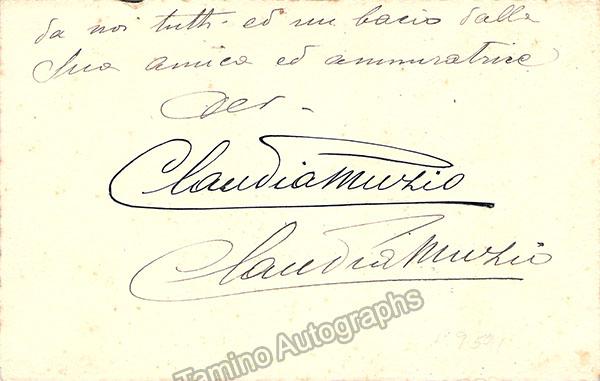 da noi tutti. ed un bacio dalla
Sua amica ed ammiratrice
Claudia Muzio
Claudia Muzio
Tamino Autographs